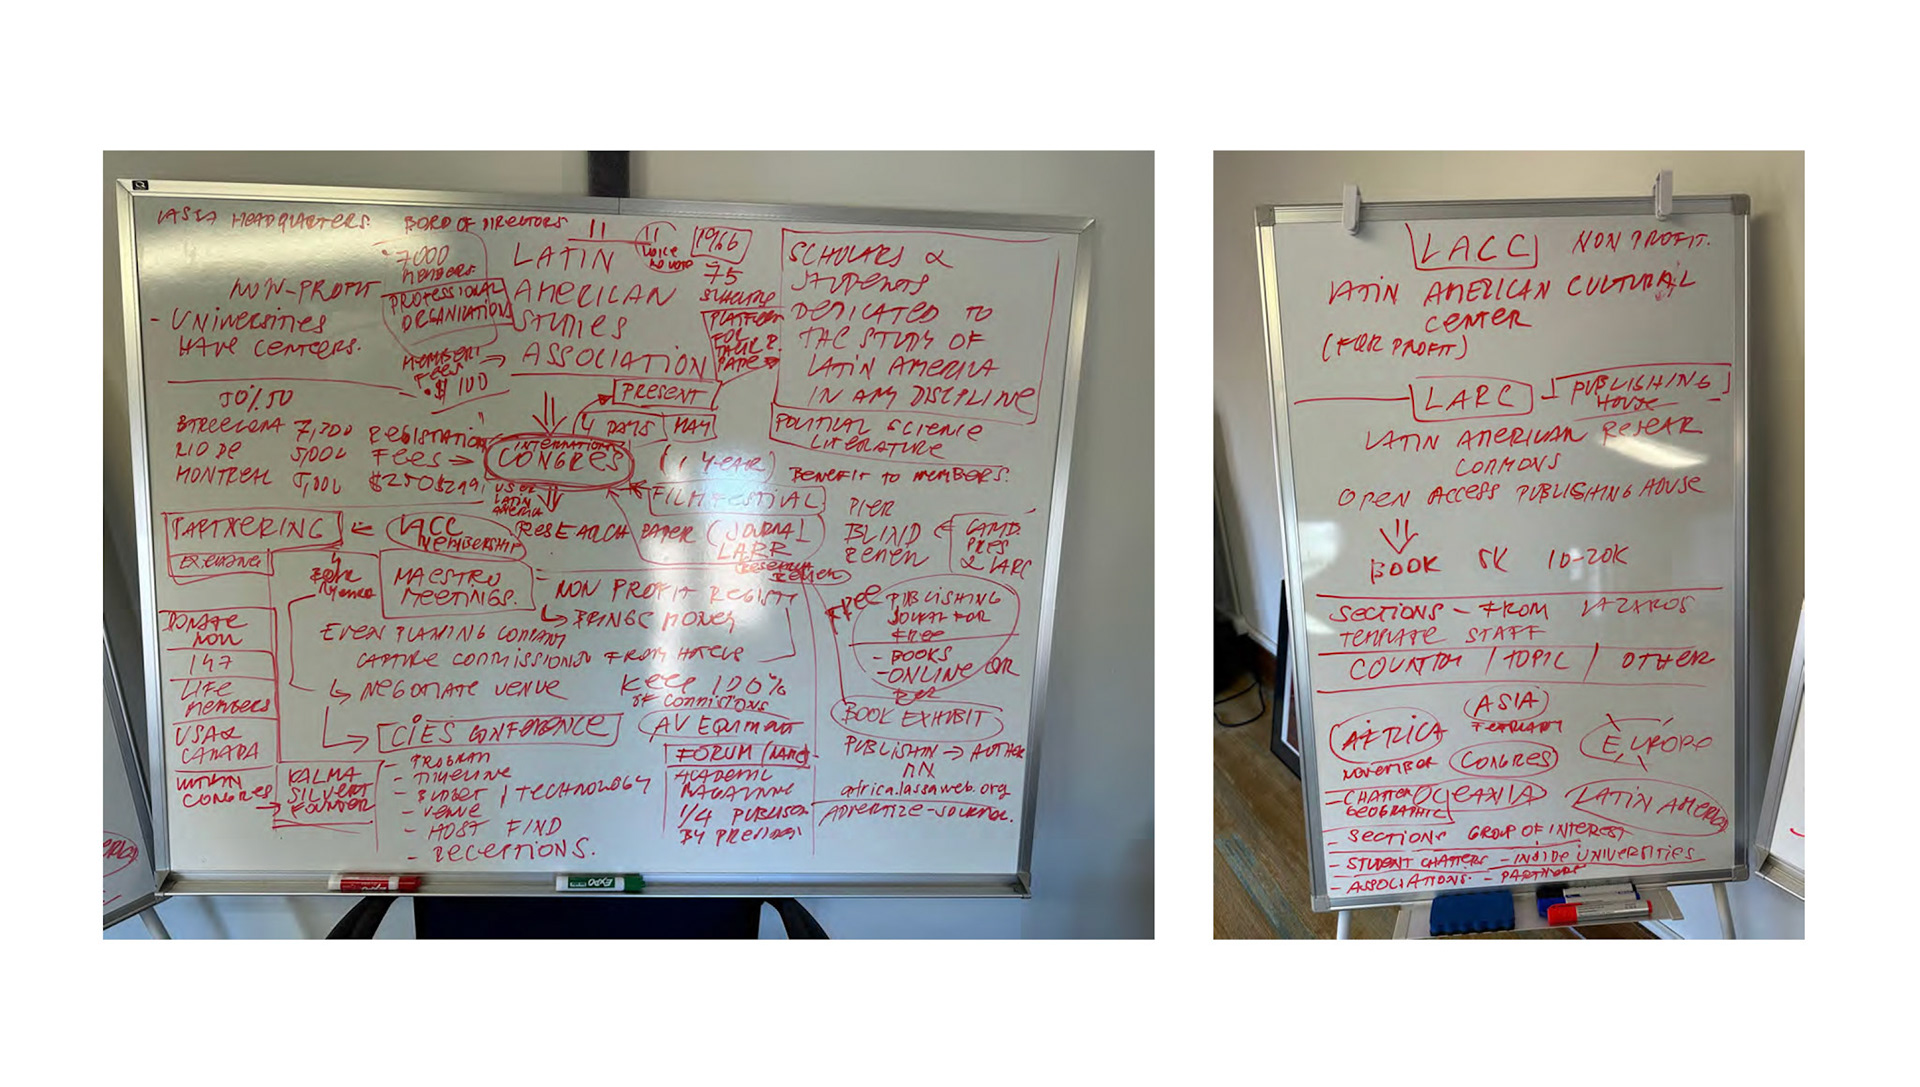 HEADQUARTERS.
BORD OF DIRECTORS
11
11
VOICE
NO VOTE
1966
7000
MEMBERS.
LATIN
AMERICAN
STUDIES
ASSOCIATION
75
NON-PROFIT
PROFESSIONAL
ORGANIZATION
- UNIVERSITIES
HAVE CENTERS.
FEES
$100
PLATFORM
FOR
SCHOLARS &
STUDENTS
DEDICATED TO
THE STUDY OF
LATIN AMERICA
IN ANY DISCIPLINE
POLITICAL SCIENCE
LITERATURE
BENEFIT TO MEMBERS.
50%.50
7,200 REGISTRATION
RIO DE 5,000 FEES
MONTREAL
PRESENT
4 DAYS MAY
INTERNATIONAL
CONGRES
(1 YEAR)
US OR
LATIN
AMERICA
FILM FESTIVAL
RESEARCH PAPER (JOURNAL
LARR
PIER
BLIND
CAMB.
PRES
& LARC
PARTNERING
LACC
MEMBERSHIP
MAESTRO
MEETINGS.
NON PROFIT
BRINGS MONEY
EVEN PLANING COMPANY
CAPTURE COMMISSIONS FROM HOTELS
NEGOTIATE VENUE
KEEP 100%
OF COMMISIONS
FREE PUBLISHING
FOR
FREE
- BOOKS
- ONLINE OR
DONATE
NOW
147
LIFE
MEMBERS
USA &
CANADA
WITHIN
CONGRES
KALMA
SILVERT
FOUNDER
CIES CONFERENCE
- PROGRAM
- TIMELINE
- BUDGET / TECHNOLOGY
- VENUE
- HOST FIND
- RECEPTIONS.
AV EQUIPMENT
FORUM (NAME)
ACADEMIC
MAGAZINE
1/4
BOOK EXHIBIT
PUBLISHIN → AUTHER
africa.lassaweb.org
ADVERTIZE - JOURNAL.
LACC NON PROFIT.
LATIN AMERICAN CULTURAL
CENTER
(FOR PROFIT)
LARC
PUBLISHING
HOUSE
LATIN AMERICAN RESEAR
COMMONS
OPEN ACCESS PUBLISHING HOUSE
BOOK 5K 10-20K
SECTIONS - FROM LAZAROS
TEMPLATE STAFF
COUNTRY / TOPIC / OTHER
ASIA
FEBRUARY
AFRICA
NOVEMBER
CONGRES
EUROPE
- CHATTER
GEOGRAPHIC
OCEANIA
LATIN AMERICA
- SECTIONS GROUP OF INTEREST
- STUDENT CHATTERS - INSIDE UNIVERSITIES
- ASSOCIATIONS. - PARTNERS
EXPO